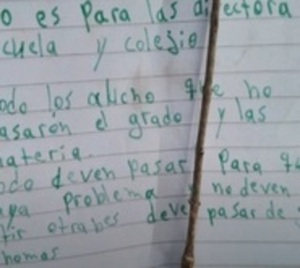 o es para las di ectora
cuela y colejio
odo los alicho que ho
asaron d grado y las
ateria.
odo deven pasar para q
ya problema y no deven
tir otrabes deve pasar de
homas